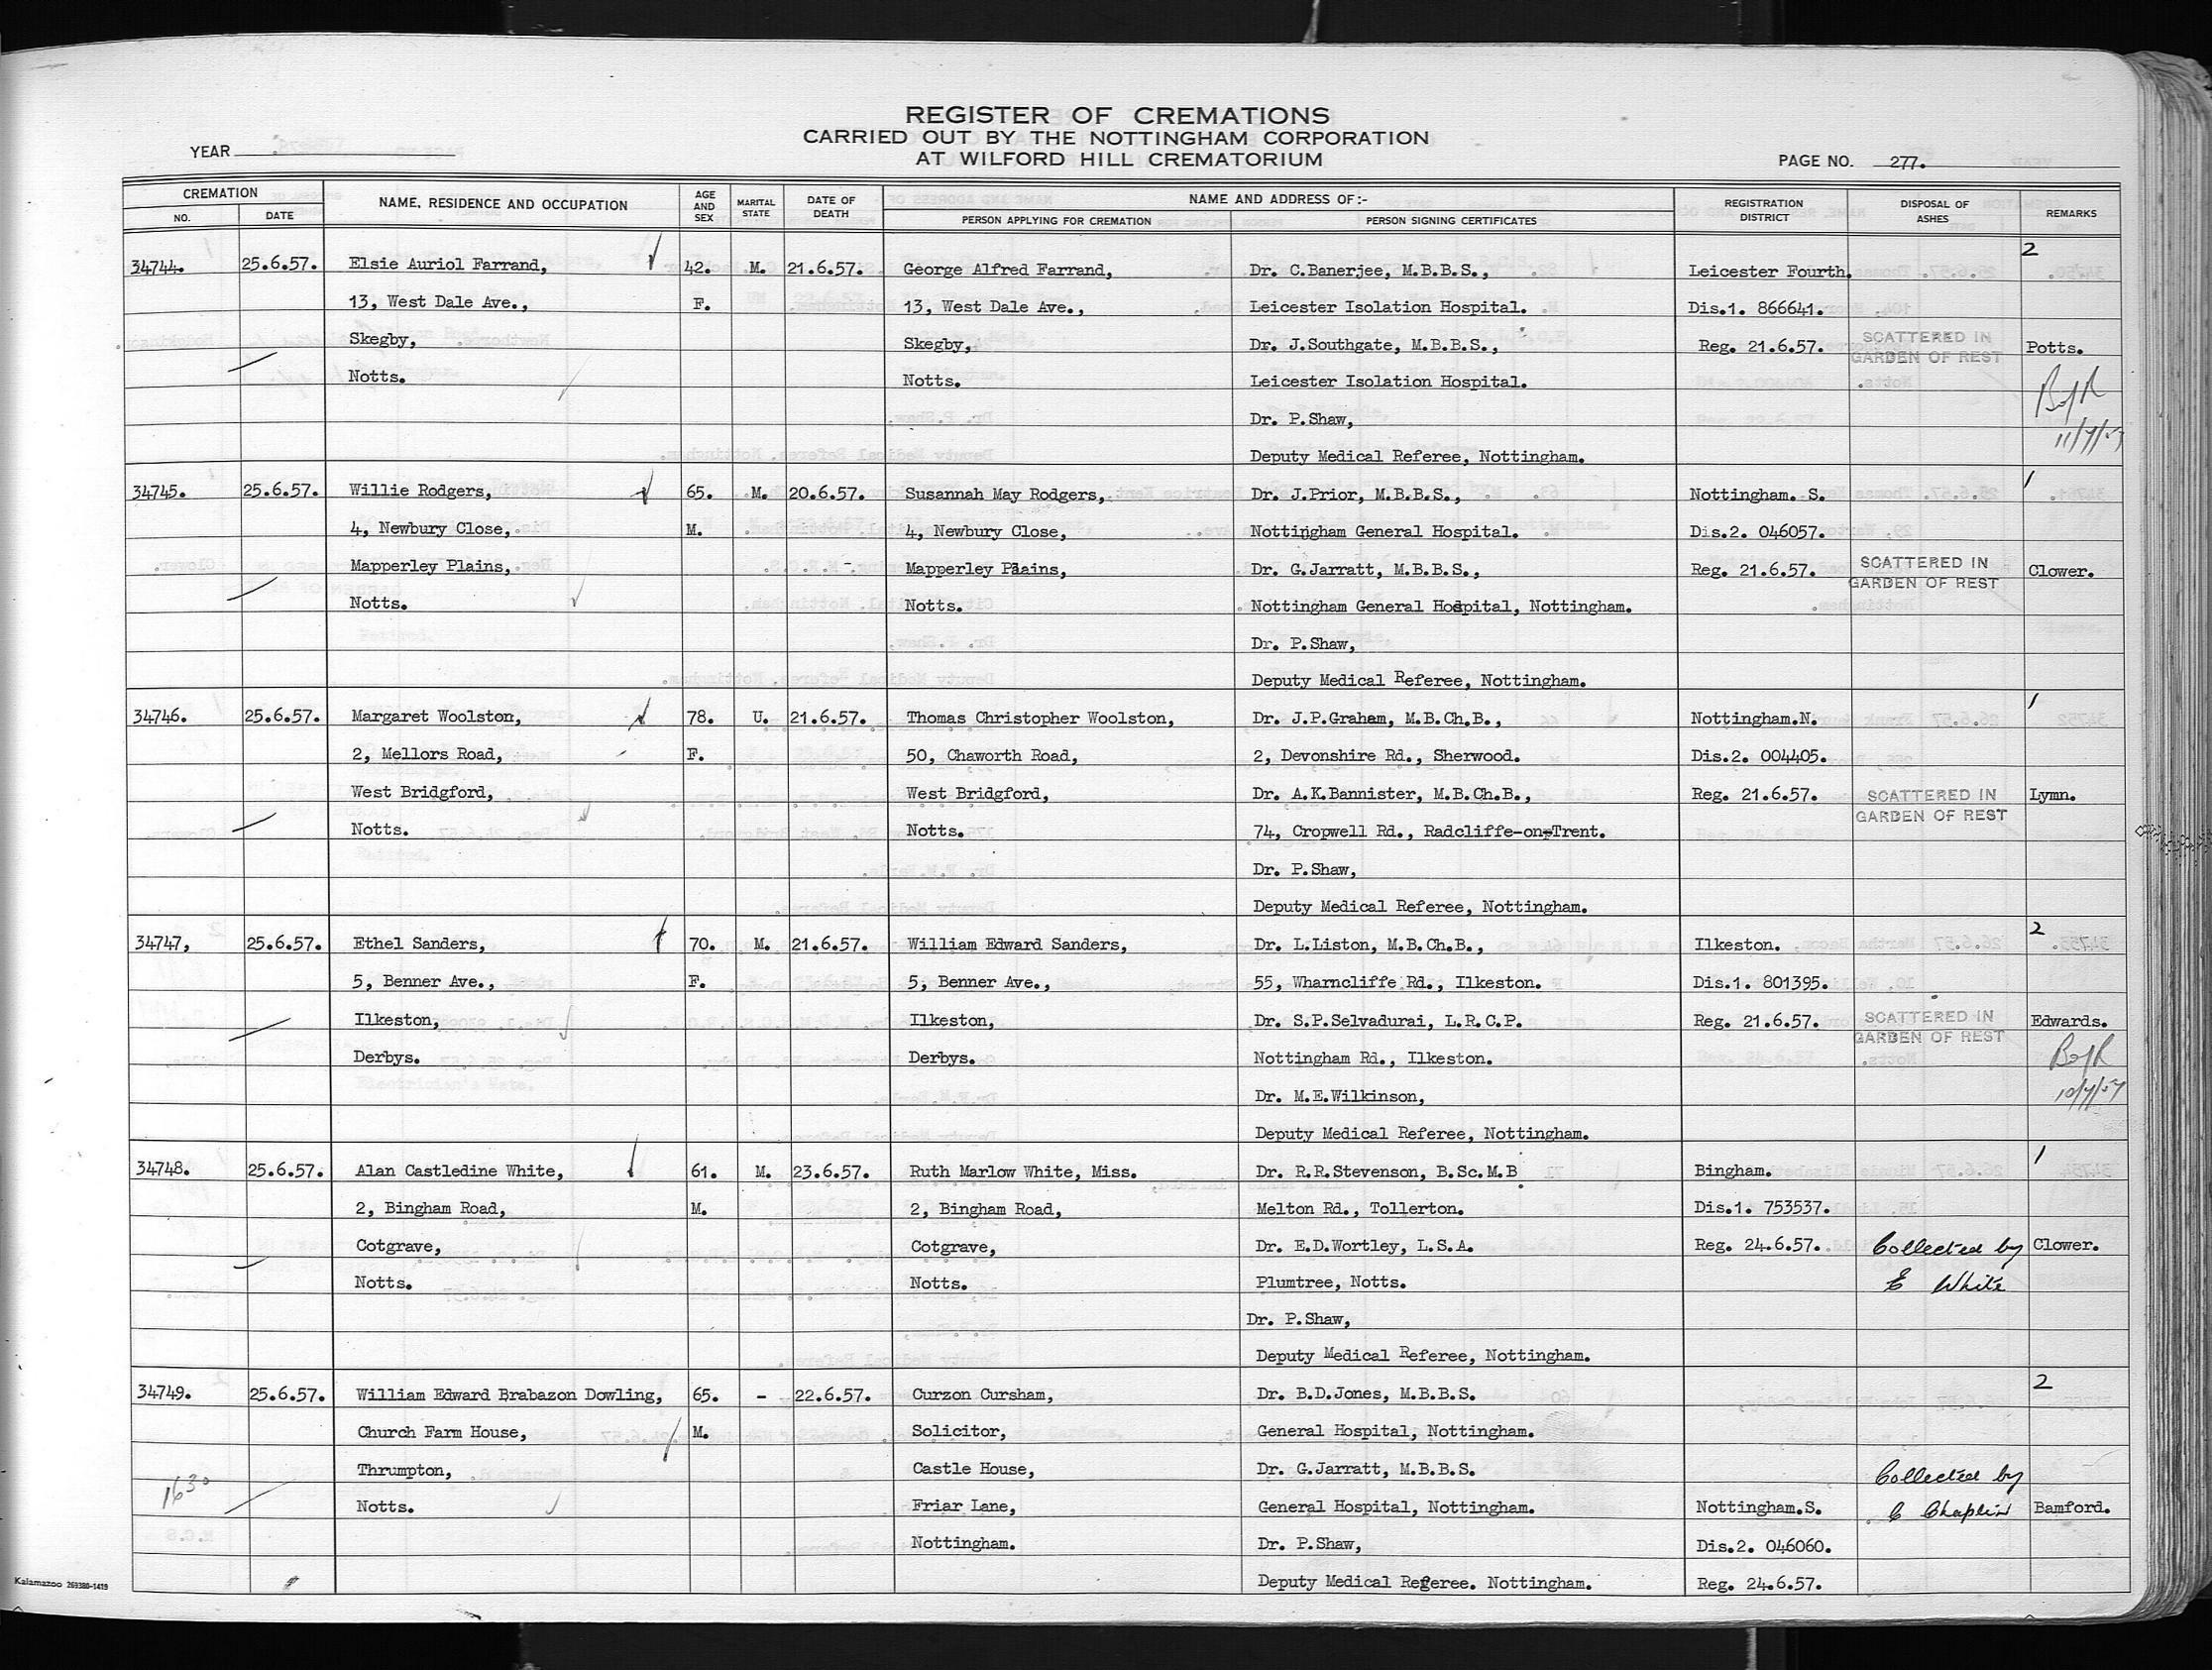 REGISTER OF CREMATIONS
CARRIED OUT BY THE NOTTINGHAM CORPORATION
AT WILFORD HILL CREMATORIUM
YEAR
PAGE NO. 277.
CREMATION
NO.
DATE
NAME, RESIDENCE AND OCCUPATION
AGE AND SEX
MARITAL STATE
DATE OF DEATH
NAME AND ADDRESS OF:-
PERSON APPLYING FOR CREMATION
PERSON SIGNING CERTIFICATES
REGISTRATION DISTRICT
DISPOSAL OF ASHES
REMARKS
2
34744. 25.6.57. Elsie Auriol Farrand, 42. M. 21.6.57. George Alfred Farrand, Dr. C.Banerjee, M.B.B.S., Leicester Fourth.
13, West Dale Ave., F. 13, West Dale Ave., Leicester Isolation Hospital. Dis.1. 866641.
Skegby, Skegby, Dr. J.Southgate, M.B.B.S., Reg. 21.6.57. SCATTERED IN Potts.
GARDEN OF REST
Notts. Notts. Leicester Isolation Hospital.
Dr. P.Shaw,
11/7/57
Deputy Medical Referee, Nottingham.
1
34745. 25.6.57. Willie Rodgers, 65. M. 20.6.57. Susannah May Rodgers, Dr. J.Prior, M.B.B.S., Nottingham. S.
4, Newbury Close, M. 4, Newbury Close, Nottingham General Hospital. Dis.2. 046057.
Mapperley Plains, Mapperley Plains, Dr. G.Jarratt, M.B.B.S., Reg. 21.6.57. SCATTERED IN Clower.
GARDEN OF REST
Notts. Notts. Nottingham General Hospital, Nottingham.
Dr. P.Shaw,
Deputy Medical Referee, Nottingham.
1
34746. 25.6.57. Margaret Woolston, 78. U. 21.6.57. Thomas Christopher Woolston, Dr. J.P.Graham, M.B.Ch.B., Nottingham.N.
2, Mellors Road, F. 50, Chaworth Road, 2, Devonshire Rd., Sherwood. Dis.2. 004405.
West Bridgford, West Bridgford, Dr. A.K.Bannister, M.B.Ch.B., Reg. 21.6.57. SCATTERED IN Lymn.
GARDEN OF REST
Notts. Notts. 74, Cropwell Rd., Radcliffe-on-Trent.
Dr. P.Shaw,
Deputy Medical Referee, Nottingham.
2
34747, 25.6.57. Ethel Sanders, 70. M. 21.6.57. William Edward Sanders, Dr. L.Liston, M.B.Ch.B., Ilkeston.
5, Benner Ave., F. 5, Benner Ave., 55, Wharncliffe Rd., Ilkeston. Dis.1. 801395.
Ilkeston, Ilkeston, Dr. S.P.Selvadurai, L.R.C.P. Reg. 21.6.57. SCATTERED IN Edwards.
GARDEN OF REST
Derbys. Derbys. Nottingham Rd., Ilkeston.
Dr. M.E.Wilkinson, 10/7/57
Deputy Medical Referee, Nottingham.
1
34748. 25.6.57. Alan Castledine White, 61. M. 23.6.57. Ruth Marlow White, Miss. Dr. R.R.Stevenson, B.Sc.M.B. Bingham.
2, Bingham Road, M. 2, Bingham Road, Melton Rd., Tollerton. Dis.1. 753537.
Cotgrave, Cotgrave, Dr. E.D.Wortley, L.S.A. Reg. 24.6.57. Collected by Clower.
Notts. Notts. Plumtree, Notts. E White
Dr. P.Shaw,
Deputy Medical Referee, Nottingham.
2
34749. 25.6.57. William Edward Brabazon Dowling, 65. - 22.6.57. Curzon Cursham, Dr. B.D.Jones, M.B.B.S.
Church Farm House, M. Solicitor, General Hospital, Nottingham.
Thrumpton, Castle House, Dr. G.Jarratt, M.B.B.S. Collected by
1630 Notts. Friar Lane, General Hospital, Nottingham. Nottingham.S. C Chaplin Bamford.
Nottingham. Dr. P.Shaw, Dis.2. 046060.
Deputy Medical Referee. Nottingham. Reg. 24.6.57.
Kalamazoo 269380-1419